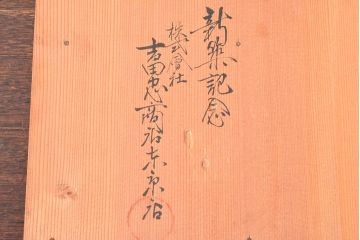 新築記念
株式會社
吉田忠商店東京店